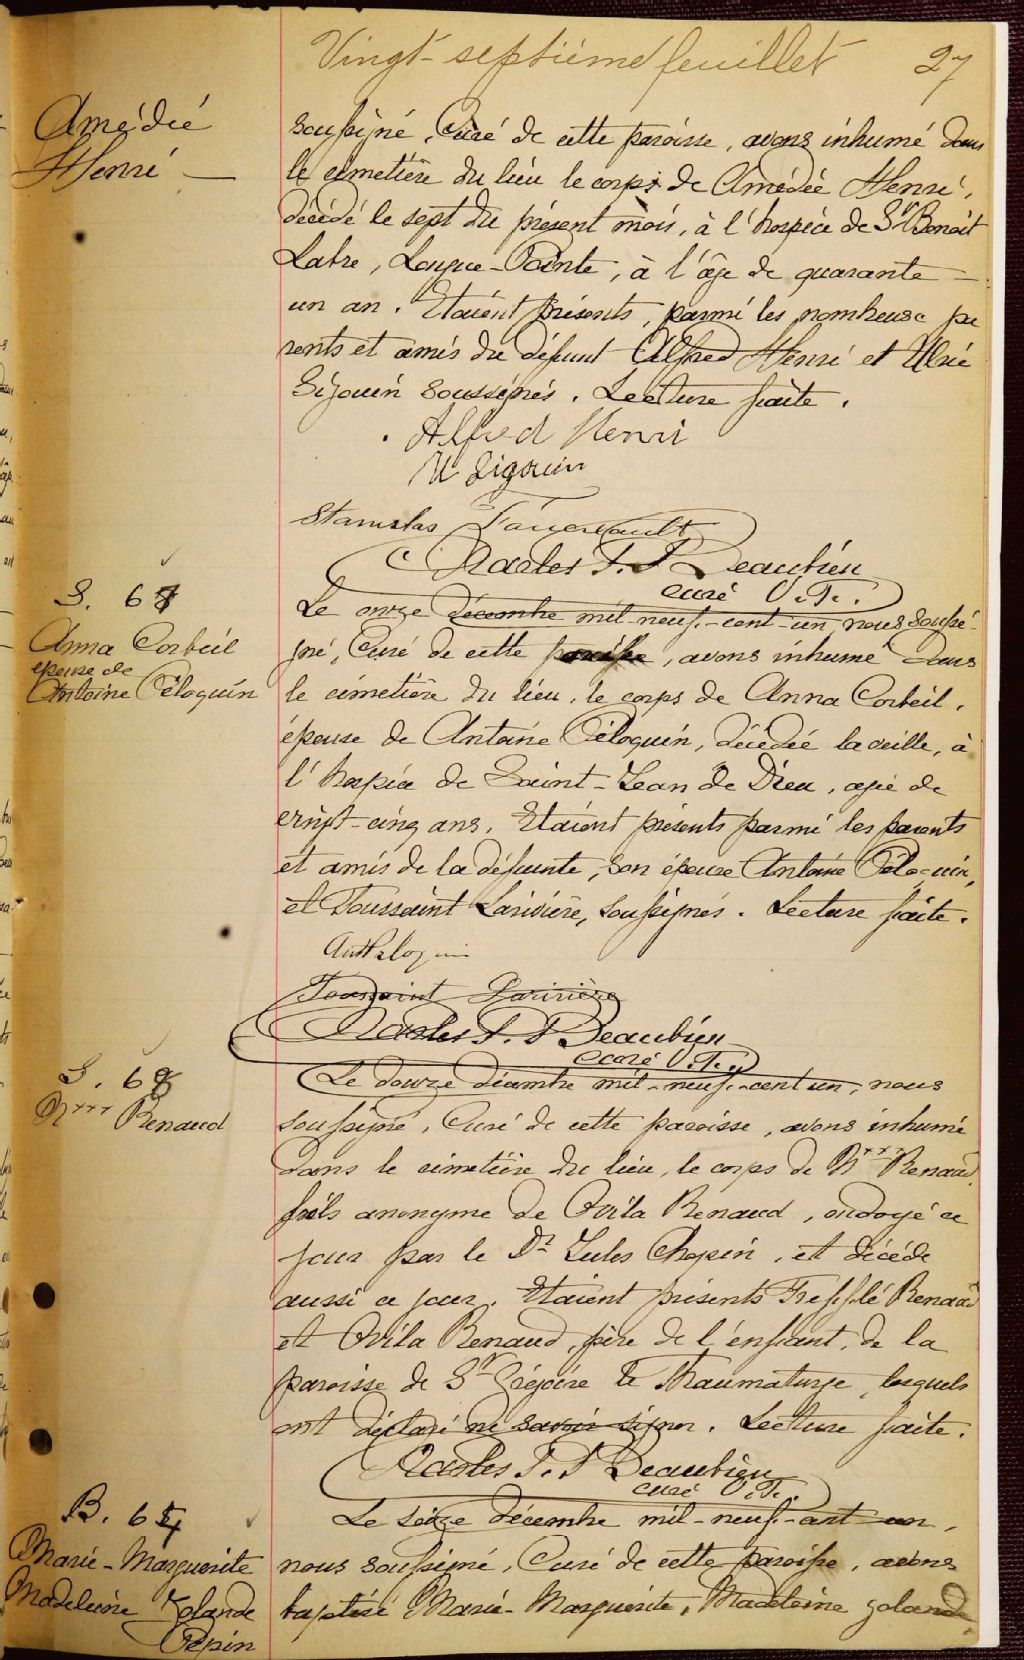 Vingt-septième feuillet 27
Amédée
Henri
soussigné, Curé de cette paroisse, avons inhumé dans
le cimetière du lieu le corps de Amédée Henri,
décédé le sept du présent mois, à l'hospice de St Benoit
Labre, Longue-Pointe, à l'âge de quarante
un an. Etaient présents, parmi les nombeuse pa
rents et amis du défunt Alfred Henri et Ulric
Sigouin soussignés. Lecture faite.
Alfred Henri
U Sigouin
Stanislas
Charles T. P Beaubien
curé V.F.
S. 67
Anna Corbeil
épouse de
Antoine Péloquin
Le onze décembre mil-neuf-cent-un, nous soussi-
gné, Curé de cette paroisse, avons inhumé dans
le cimetière du lieu, le corps de Anna Corbeil,
épouse de Antoine Péloquin, décédée la veille, à
l'hospice de Saint-Jean de Dieu, agée de
vingt-cinq ans. Etaient présents parmi les parents
et amis de la défunte, son épouse Antoine Péloquin,
et Toussaint Larivière, soussignés. Lecture faite.
Ant Peloquin
Toussaint Larivière
Charles T. P Beaubien
curé V.F.
S. 68
N*** Renaud
Le douze décembre mil-neuf-cent un, nous
soussigné, Curé de cette paroisse, avons inhumé
dans le cimetière du lieu, le corps de N*** Renaud,
fils anonyme de Ovila Renaud, ondoyé ce
jour par le Dr Jules Chopin, et décédé
aussi ce jour. Etaient présents Trefflé Renaud
et Ovila Renaud, père de l'enfant, de la
paroisse de St Grégoire le Thaumaturge, lesquels
ont déclaré ne savoir signer. Lecture faite.
Charles T. P Beaubien
curé V.F.
B. 64
Marie-Marguerite
Madeleine Yolande
Pépin
Le seize décembre mil-neuf-cent un,
nous soussigné, Curé de cette paroisse, avons
baptisé Marie-Marguerite, Madeleine Yolande